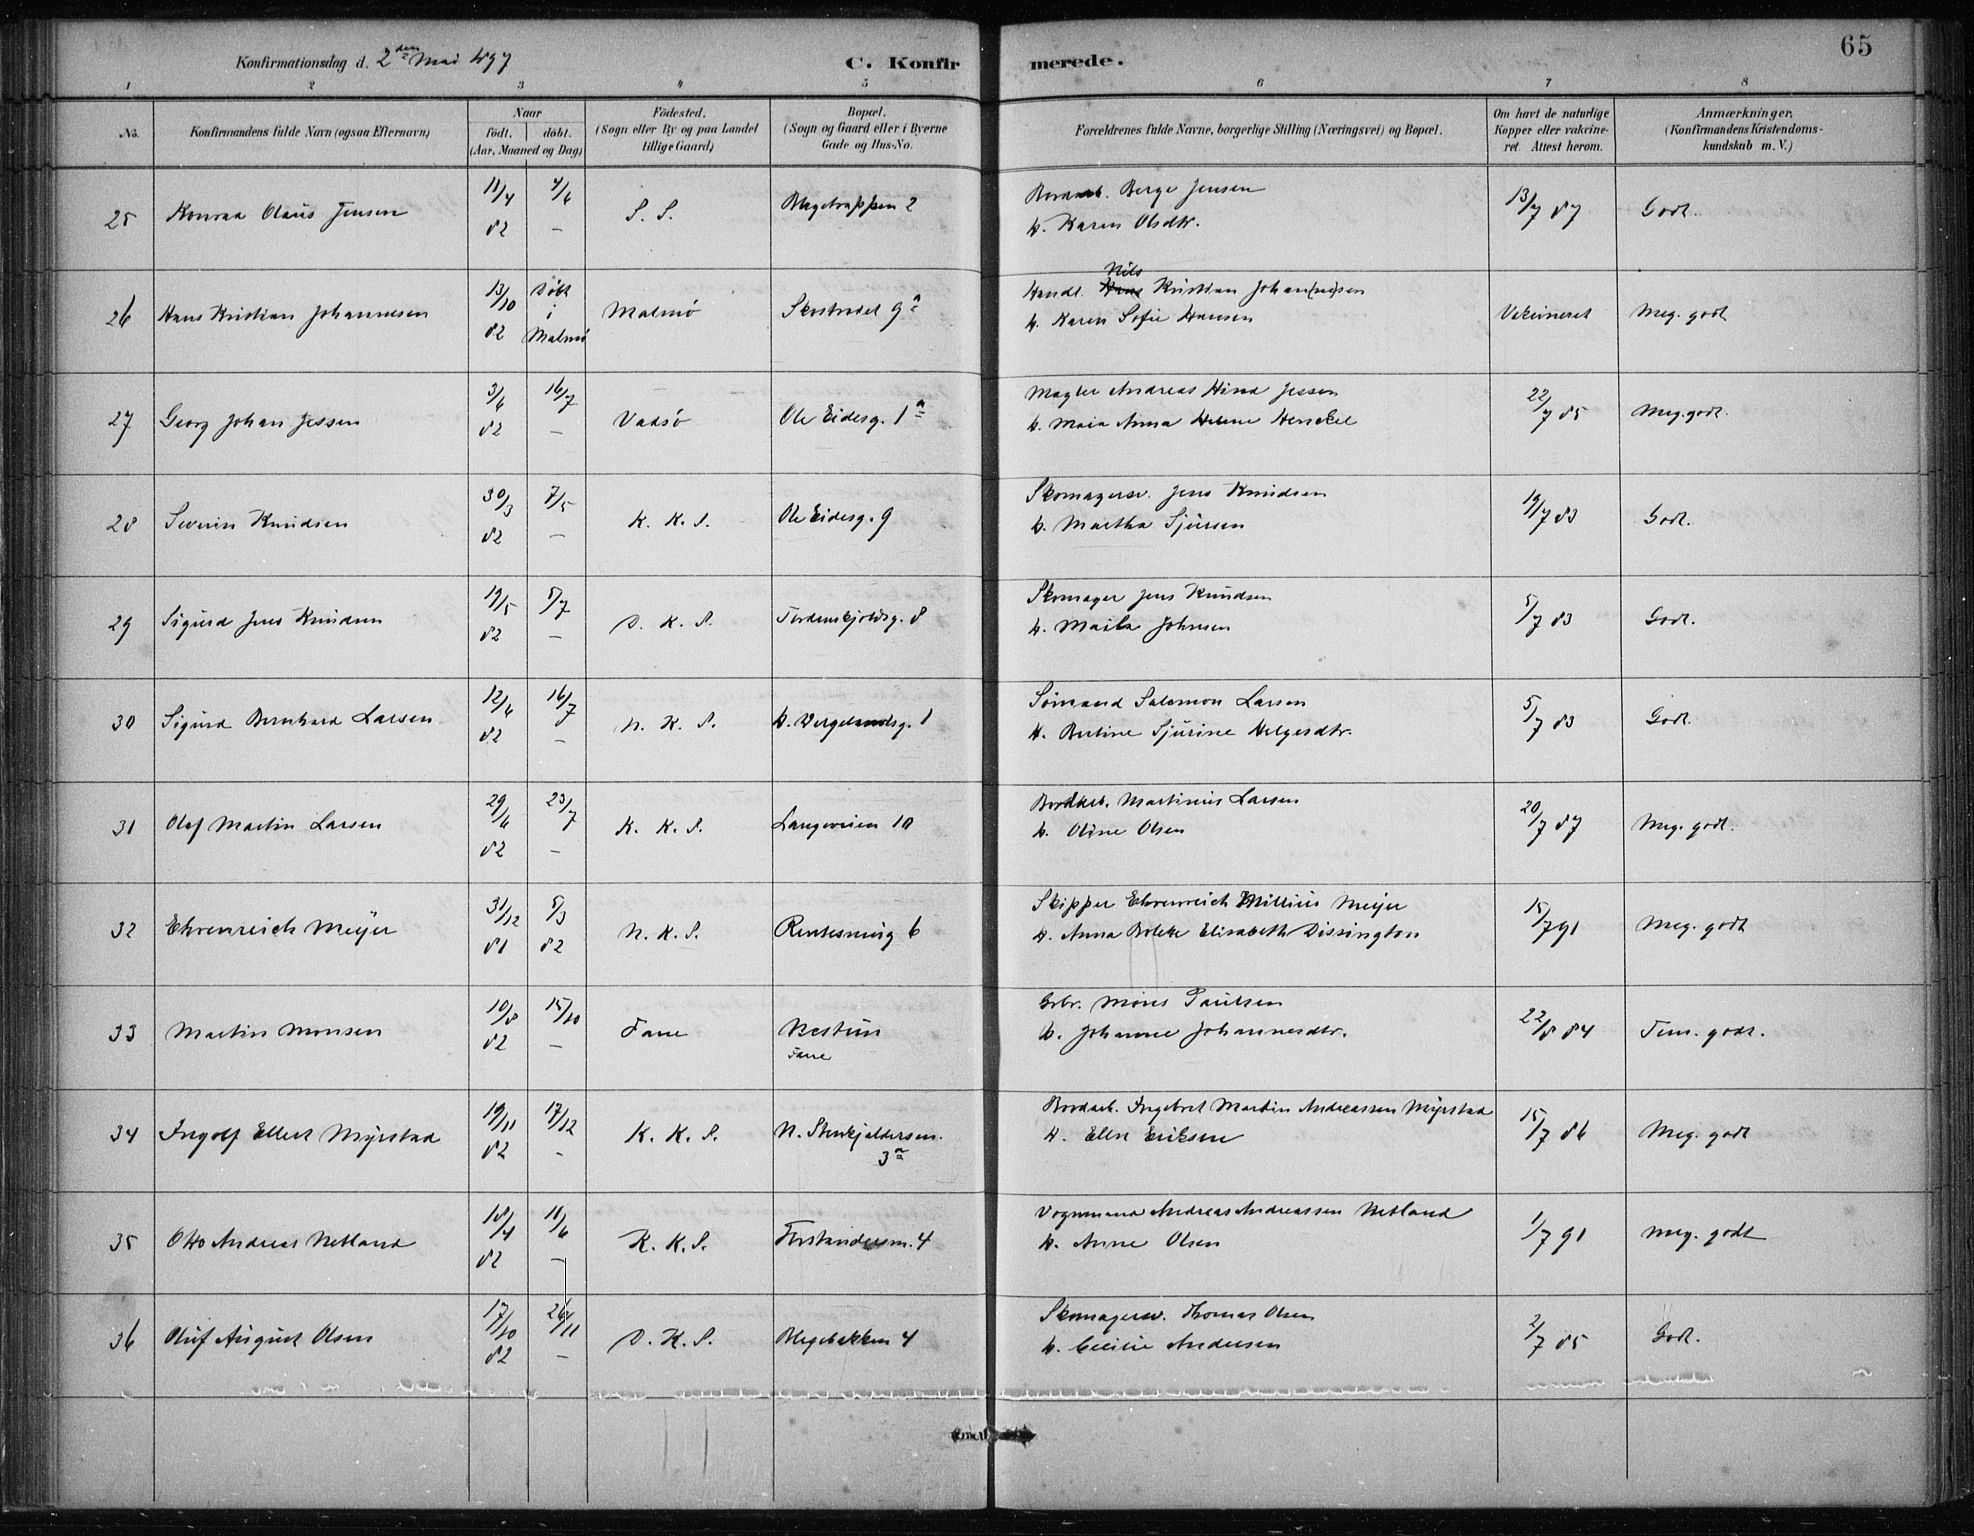 Konfirmationsdag d. 2den Mai 1897
C. Konfirmerede.
65
1 2 3 4 5 6 7 8
No.
Konfirmandens fulde Navn (ogsaa Efternavn)
Naar
født. døbt.
(Aar, Maaned og Dag)
Födested.
(Sogn eller By og paa Landet
tillige Gaard)
Bopæl.
(Sogn og Gaard eller i Byerne
Gade og Hus-No.
Forældrenes fulde Navne, borgerlige Stilling (Næringsvei) og Bopæl.
Om havt de naturlige
Kopper eller vakcine-
ret. Attest herom.
Anmærkninger,
(Konfirmandens Kristendoms-
kundskab m. V.)
25 Konrad Olaus Jensen 11/4 82 4/6 — S. S. Blegetrappen 2
Bordarb. Berge Jensen
h. Karen Olsdtr.
13/7 87 Godt.
26 Hans Kristian Johannesen 13/10 82 Døbt i Malmø Malmø Skostrædet 9a
Handl. Nils Kristian Johan(ne)sen
h. Karen Sofie Hansen
Vakcineret Meg. godt
27 Georg Johan Jessen 3/6 82 16/7 — Vadsø Ole Eidesg. 1a
Mægler Andreas Hind Jessen
h. Maia Anna Helene Henckel
22/7 85 Meg. godt.
28 Severin Knudsen 30/3 82 7/5 — K. K. S. Ole Eidesg. 9
Skomagersv. Jens Knudsen
h. Martha Sjursen
19/7 83 Godt.
29 Sigurd Jens Knudsen 19/5 82 5/7 — D. K. S. Tordenskjoldsg. 8
Skomager Jens Knudsen
h. Johnsen
5/7 83 Godt.
30 Sigurd Bernhard Larsen 12/6 82 16/7 — N. K. S. H. Wergelandsg. 1
Sømand Salomon Larsen
h. Bertine Sjurine Helgesdtr.
5/7 83 Godt.
31 Olaf Martin Larsen 29/6 82 23/7 — K. K. S. Langeveien 10
Bordarb. Martinus Larsen
h. Oline Olsen
20/7 87 Meg. godt.
32 Ehrenreich Meyer 31/12 81 5/3 82 N. K. S. 6
Skipper Ehrenreich Meyer
h. Anna Elisabeth Dissington
15/7 91 Meg. godt
33 Martin Monsen 10/8 82 15/10 — Fane Nestun
Fane
Gbr. Mons Paulsen
h. Johanne Johannesdtr.
22/8 84 Tem. godt.
34 Ingolf Ellert Myrstad 19/11 82 17/12 - K. K. S. N. Stenkjeldersm.
3a
Bordarb. Ingebret Martin Andreassen Myrstad
h. Ellen Eriksen
15/7 86 Meg. godt
35 Otto Andreas Netland 18/4 82 11/6 — K. K. S. Forstandersm. 4
Vognmand Andreas Andreassen Netland
h. Anne Olsen
1/7 91 Meg. godt
36 Oluf August Olsen 17/10 82 26/11 — D. K. S. Blegebakken 4
Skomagersv. Thomas Olsen
h. Cecilie Andersen
2/7 85 Godt.